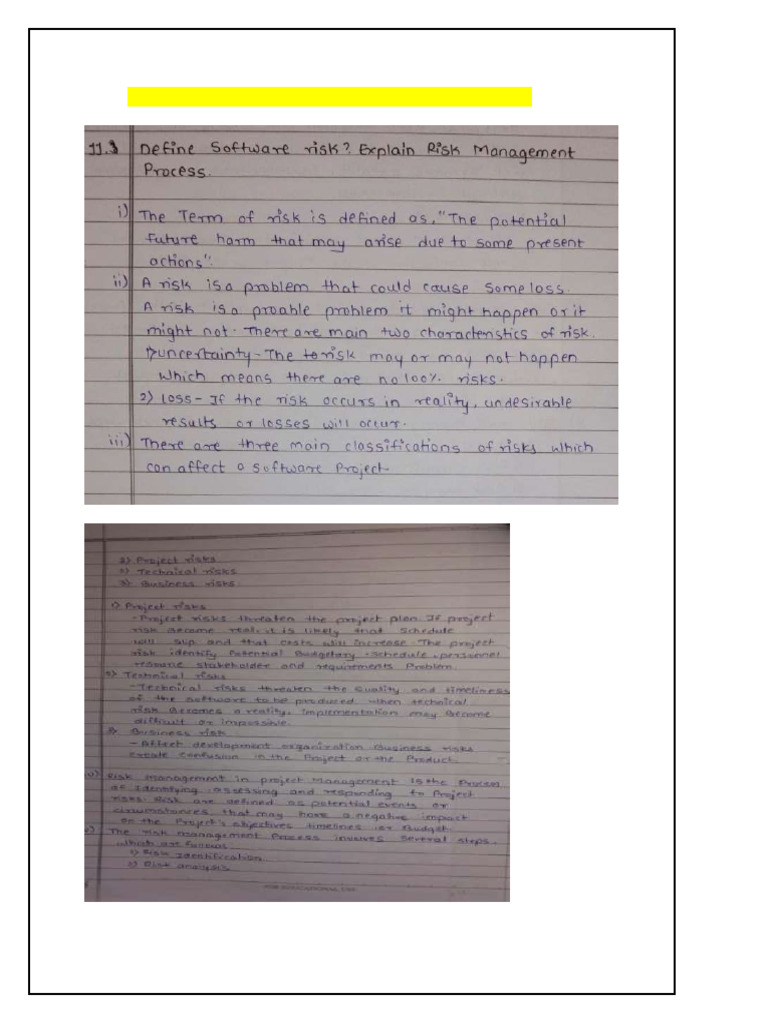 11.3 Define Software risk? Explain Risk Management
Process.
i) The Term of risk is defined as, "The potential
future harm that may arise due to some present
actions".
ii) A risk is a problem that could cause some loss.
A risk is a proable problem it might happen or it
might not. There are main two characteristics of risk.
1) uncertainty - The risk may or may not happen
which means there are no 100% risks.
2) loss - If the risk occurs in reality, undesirable
results or losses will occur.
iii) There are three main classifications of risks which
can affect a software Project.
1) Project risks
2) Technical risks
3) Business risks.
1) Project risks
- Project risks threaten the project plan. If project
risk Become real, it is likely that schedule
will slip and that costs will increase. The project
risk identify Potential Budgetary, schedule, personnel
stakeholder and requirements Problem.
2) Technical risks
- Technical risks threaten the Quality and timeliness
of the software to be produced. when technical
risk Becomes a reality, implementation may Become
difficult or impossible.
3) Business risk
- Affect development organization Business risks
create confusion in the Project or the Product.
iv) Risk management in project management is the Process
of Identifying assessing and responding to Project
risks. Risk are defined as potential events or
circumstances that may have a negative impact
on the Project's objectives timelines or Budget.
v) The risk management Process involves several steps.
which are
1) Risk Identification
2) Risk analysis